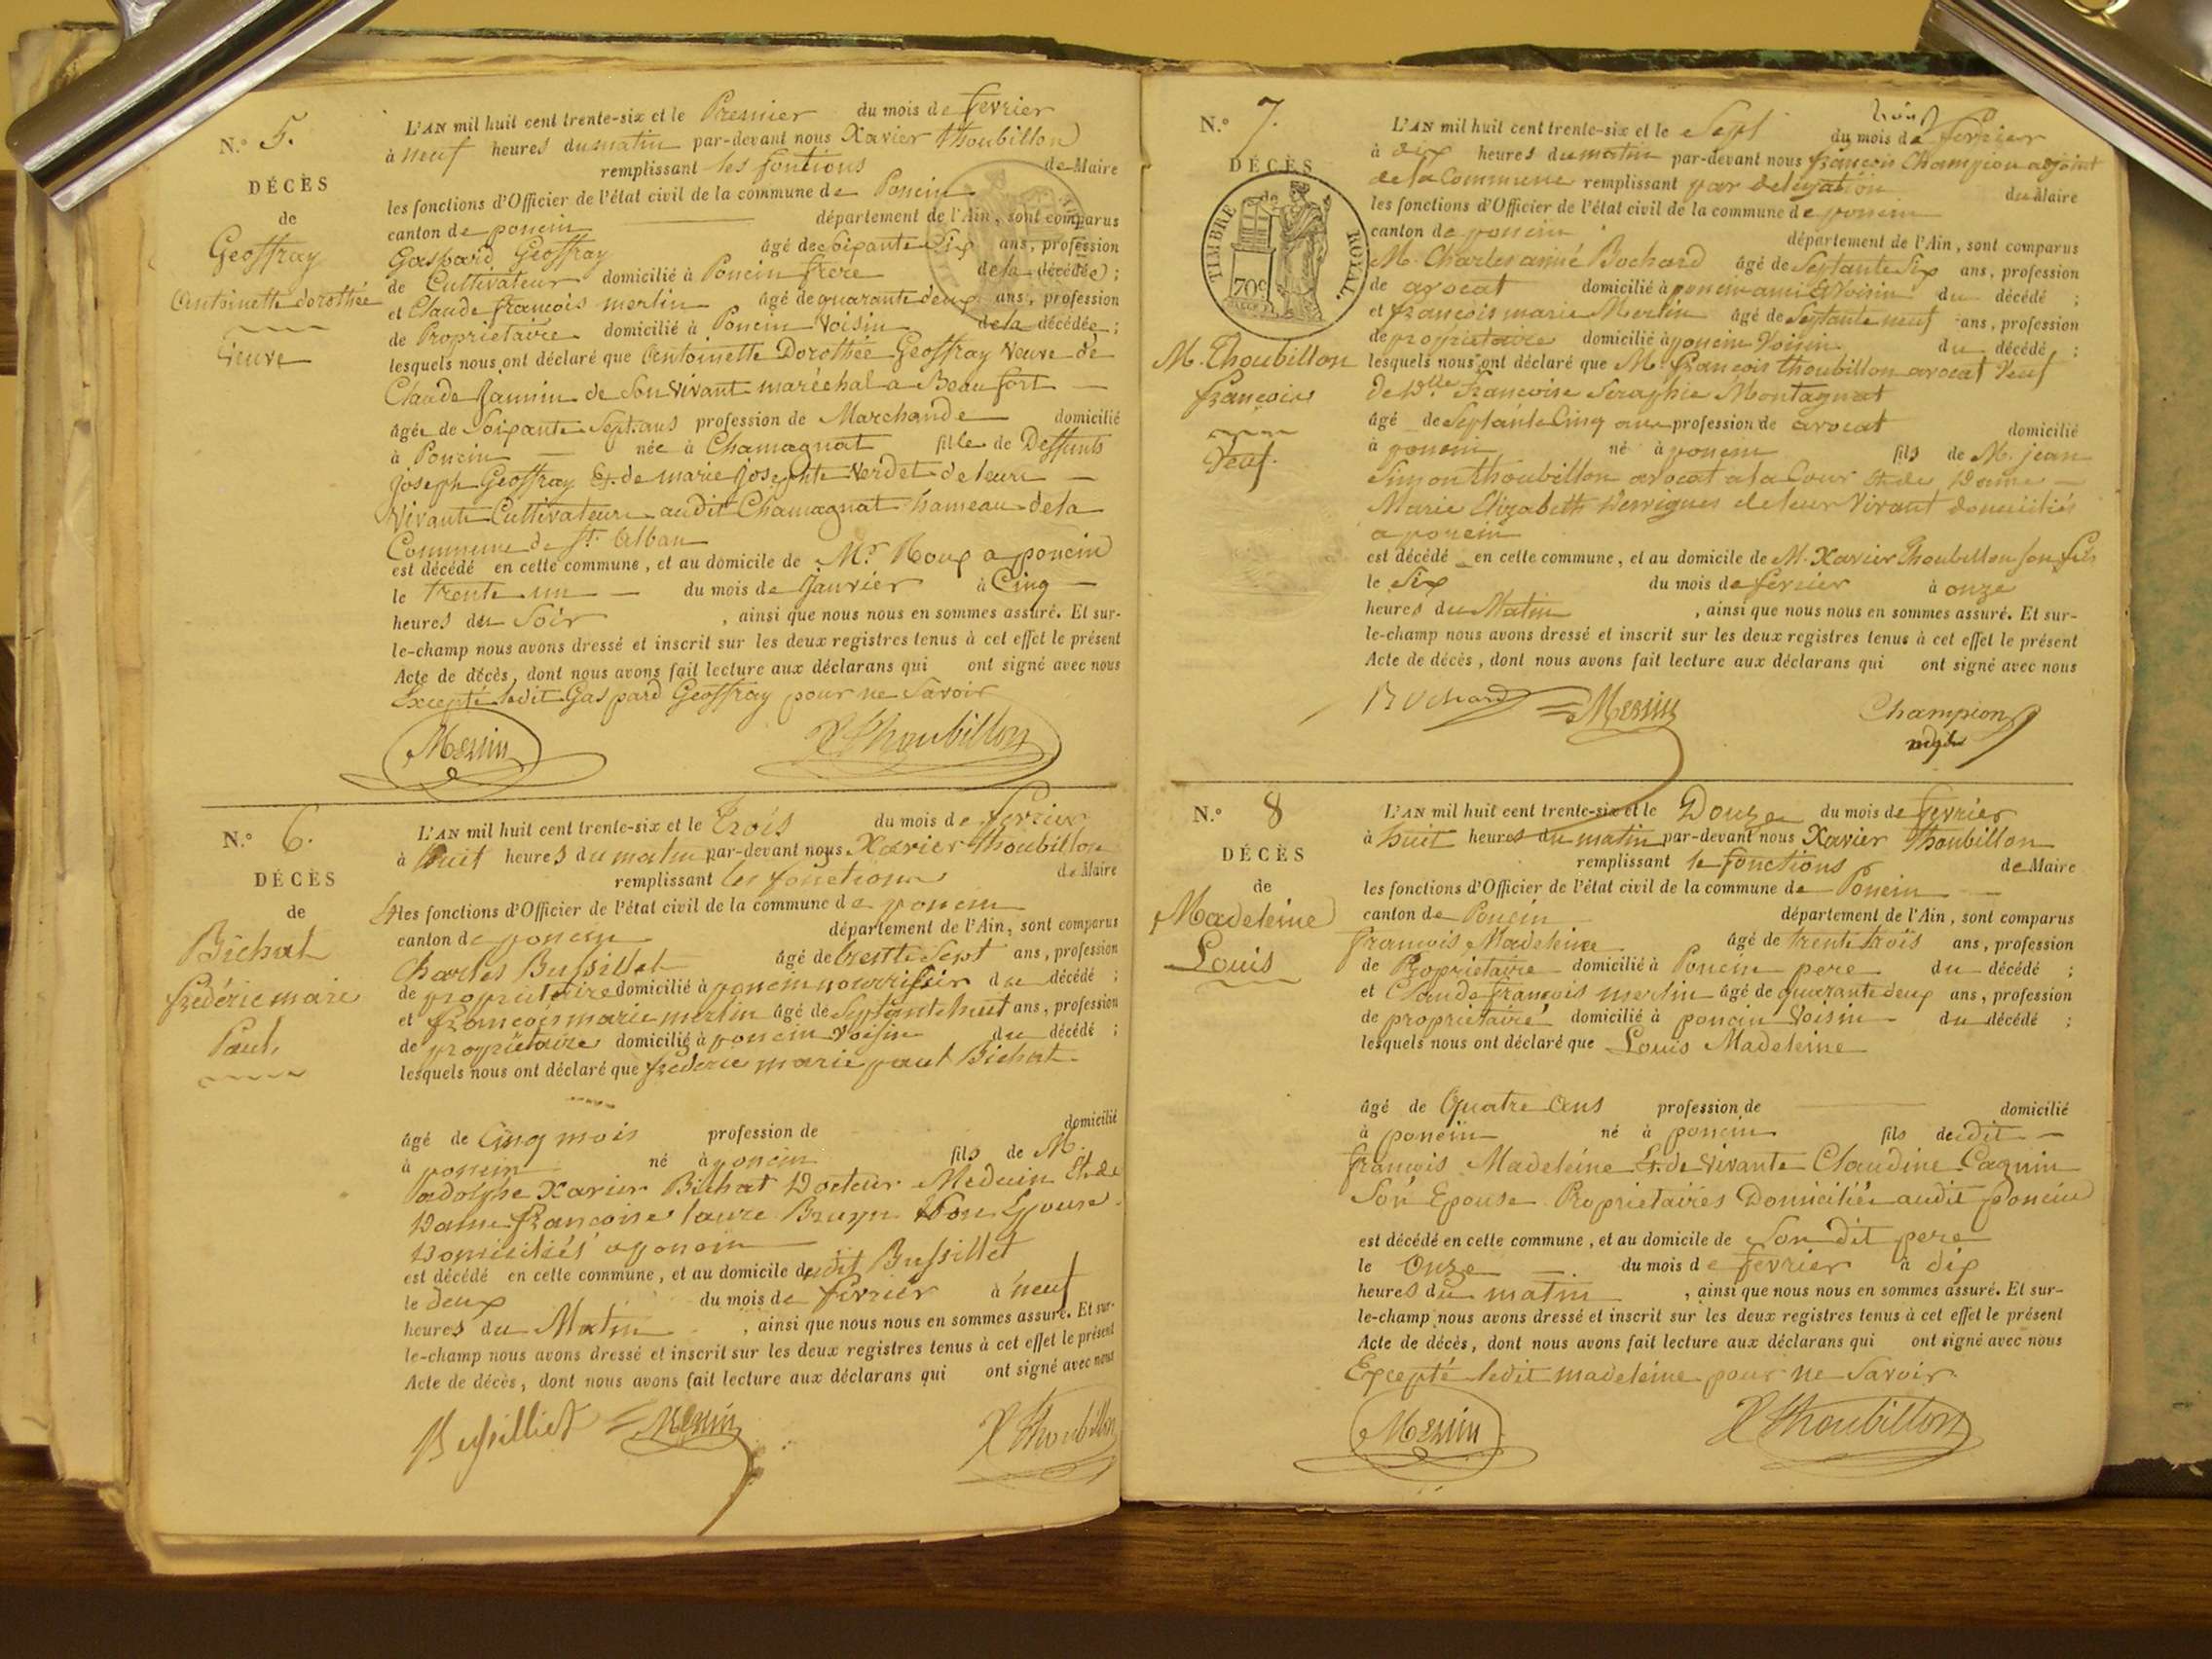 N.° 5.
DÉCÈS
de
Geoffray
Antoinette dorothée
Veuve
L'AN mil huit cent trente-six et le Premier du mois de fevrier
à neuf heures du matin par-devant nous Xavier Thoubillon
remplissant les fontions de Maire
les fonctions d'Officier de l'état civil de la commune de Poncin
canton de poncin département de l'Ain, sont comparus
Gaspard Geoffray âgé de soixante Six ans, profession
de Cultivateur domicilié à Poncin frere de la décédée ;
et Claude françois merlin âgé de quarante deux ans, profession
de Proprietaire domicilié à Poncin Voisin de la décédée ;
lesquels nous ont déclaré que Antoinette Dorothée Geoffray Veuve de
Claude Jannin de Son vivant maréchal a Beaufort
âgée de Soixante Sept ans profession de Marchande domicilié
à Poncin née à Chamagnat fille de Deffunts
Joseph Geoffray Et de marie josephte Verdet de leurs
Vivants Cultivateurs audit Chamagnat hameau de la
Commune de St. Alban
est décédé en cette commune, et au domicile de Mr. Roux a poncin
le trente un du mois de Janvier à Cinq
heures du Soir , ainsi que nous nous en sommes assuré. Et sur-
le-champ nous avons dressé et inscrit sur les deux registres tenus à cet effet le présent
Acte de décès, dont nous avons fait lecture aux déclarans qui ont signé avec nous
Excepté ledit Gaspard Geoffray pour ne Savoir
Merlin X Thoubillon
N.° 6.
DÉCÈS
de
Bichat
frédéric marie
Paul,
L'AN mil huit cent trente-six et le Trois du mois de fevrier
à huit heures du matin par-devant nous Xavier Thoubillon
remplissant les fonctions de Maire
les fonctions d'Officier de l'état civil de la commune de poncin
canton de poncin département de l'Ain, sont comparus
Charles Bussillet âgé de trente Sept ans, profession
de proprietaire domicilié à poncin nourrissier du décédé ;
et françois marie merlin âgé de Septante huit ans, profession
de proprietaire domicilié à poncin voisin du décédé ;
lesquels nous ont déclaré que frederic marie paul Bichat
âgé de Cinq mois profession de domicilié
à poncin né à poncin fils de M.
adolphe Xavier Bichat Docteur Medecin Et de
Dame françoise laure Bruyn Son Epouse
Domiciliés a poncin
est décédé en cette commune, et au domicile dudit Bussillet
le deux du mois de fevrier à neuf
heures du Matin , ainsi que nous nous en sommes assuré. Et sur-
le-champ nous avons dressé et inscrit sur les deux registres tenus à cet effet le présent
Acte de décès, dont nous avons fait lecture aux déclarans qui ont signé avec nous
Bussilliet Merlin X Thoubillon
N.° 7.
DÉCÈS
de
TIMBRE ROYAL.
70c
M. Thoubillon
françois
Veuf.
L'AN mil huit cent trente-six et le Sept du mois de fevrier
à dix heures du matin par-devant nous françois Champion adjoint
de la Commune remplissant par delegation du Maire
les fonctions d'Officier de l'état civil de la commune de poncin
canton de poncin département de l'Ain, sont comparus
M. Charles aimé Bochard âgé de Septante Six ans, profession
de avocat domicilié à poncin ami & Voisin du décédé ;
et françois marie Merlin âgé de Septante neuf ans, profession
de proprietaire domicilié à poncin Voisin du décédé ;
lesquels nous ont déclaré que M. françois thoubillon avocat Veuf
de Dlle. françoise Seraphie Montagnat
âgé de Septante Cinq ans profession de avocat domicilié
à poncin né à poncin fils de M. jean
Simon thoubillon avocat a la Cour Et de Dame
Marie Elizabeth Werrigues de leur Vivant domiciliés
a poncin
est décédé en cette commune, et au domicile de M. Xavier Thoubillon son fils
le Six du mois de fevrier à onze
heures du Matin , ainsi que nous nous en sommes assuré. Et sur-
le-champ nous avons dressé et inscrit sur les deux registres tenus à cet effet le présent
Acte de décès, dont nous avons fait lecture aux déclarans qui ont signé avec nous
Bochard Merlin Champion
adjt
N.° 8
DÉCÈS
de
Madeleine
Louis
L'AN mil huit cent trente-six et le Douze du mois de fevrier
à huit heures du matin par-devant nous Xavier Thoubillon
remplissant le fonctions de Maire
les fonctions d'Officier de l'état civil de la commune de Poncin
canton de Poncin département de l'Ain, sont comparus
françois Madeleine âgé de trente trois ans, profession
de Proprietaire domicilié à Poncin pere du décédé ;
et Claude françois merlin âgé de quarante deux ans, profession
de proprietaire domicilié à poncin Voisin du décédé ;
lesquels nous ont déclaré que Louis Madeleine
âgé de Quatre Ans profession de domicilié
à poncin né à poncin fils dudit
françois Madeleine Et de vivante Claudine Cagnin
Son Epouse Proprietaires Domiciliés audit Poncin
est décédé en cette commune, et au domicile de Son dit pere
le Onze du mois de fevrier à dix
heures du matin , ainsi que nous nous en sommes assuré. Et sur-
le-champ nous avons dressé et inscrit sur les deux registres tenus à cet effet le présent
Acte de décès, dont nous avons fait lecture aux déclarans qui ont signé avec nous
Excepté ledit madeleine pour ne Savoir.
Merlin X Thoubillon